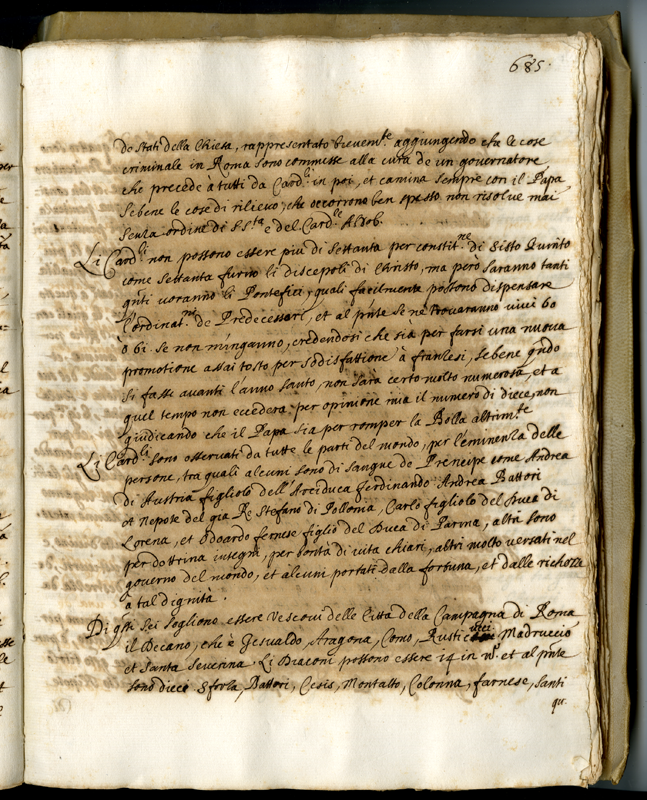 685.
de Stati della Chiesa, rappresentato brevem.te aggiungendo cha le cose
criminale in Roma sono commesse alla cura de un governatore
che precede a tutti da Card.li in poi, et camina sempre con il Papa
Sebene le cose di rilievo, che occorrono ben spesso non risolve mai
senza ordine di S.S.ta e del Card.le Aldob.
Li Card.li non possono essere piu di settanta per constit.ne di Sisto Quinto
come settanta furno li discepoli di Christo, ma però saranno tanti
qnti voranno li Pontefici, quali facilmente possono dispensare
l'ordinat.ni de Predecessori, et al pnte se ne trovaranno vivi 60
ò 61. se non m'inganno, credendosi che sia per farsi una nuova
promotione assai tosto per sodisfattione à franzesi, sebene qndo
si fasse avanti l'anno santo, non sarà certo molto numerosa, et a
quel tempo non eccederà per opinione mia il numero di diece, non
giudicando che il Papa sia per romper la Bolla altrim.te
Li Card.li sono osservati da tutte le parti del mondo, per l'eminenza delle
persone, tra quali alcuni sono di sangue de Prencipe come Andrea
di Austria figliolo dell'Arciduca Ferdinando Andrea Battori
et Nepote del qia Re Stefano di Pollonia, Carlo figliolo del Duca di
Lorena, et Odoardo fernese figlio del Duca di Parma, altri sono
per dottrina insegni, per bontà di vita chiari, altri molto versati nel
governo del mondo, et alcuni portati dalla fortuna, et dalle richezze
à tal dignità.
Di qsti sei sogliono essere Vescovi delle Città della Campagna di Roma
il Decano, che è Gesualdo, Aragona, Como, Rusticucci Madruccio
et Santa Severina. Li Diaconi possono essere 14 in n.º et al pnte
sono dieci Sforza, Battori, Cesis, Montalto, Colonna, farnese, Santi
qu.